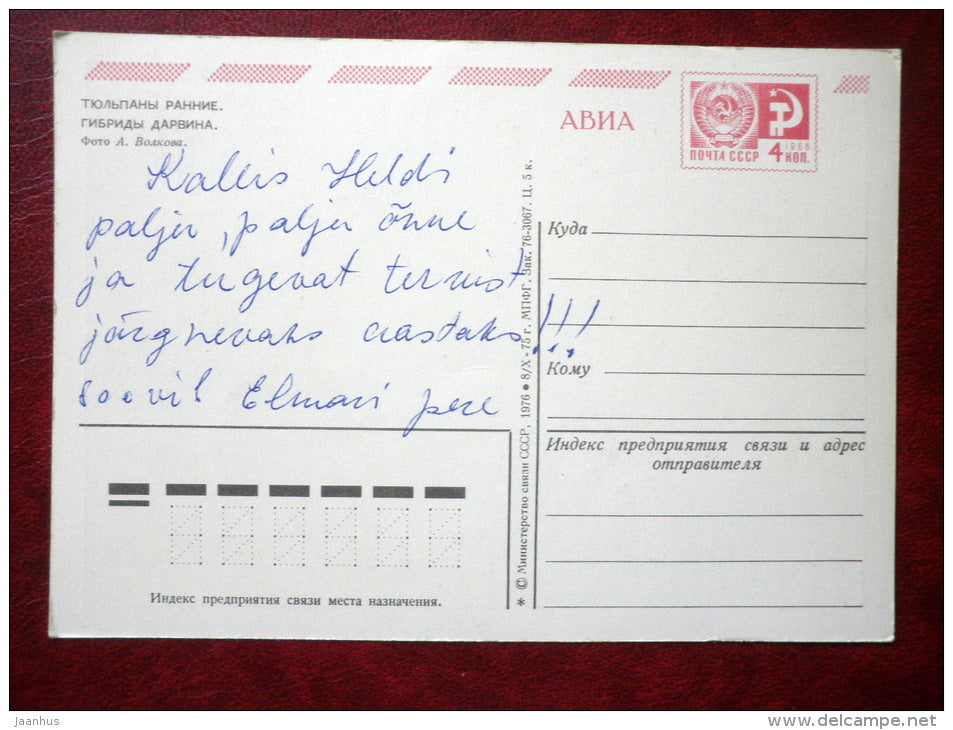 ТЮЛЬПАНЫ РАННИЕ.
ГИБРИДЫ ДАРВИНА.
Фото А. Волкова.
АВИА
1966
ПОЧТА СССР 4 КОП.
Kallis Heldi
palju, palju õnne
ja tugevat tervist
järgnevaks aastaks!!!
soovib Elmari pere
Куда
Кому
Индекс предприятия связи и адрес
отправителя
* © Министерство связи СССР, 1976 ● 8/X - 75 г. МПФГ. Зак. 76-3067. Ц. 5 к.
Индекс предприятия связи места назначения.
Jaanhus
www.delcampe.net